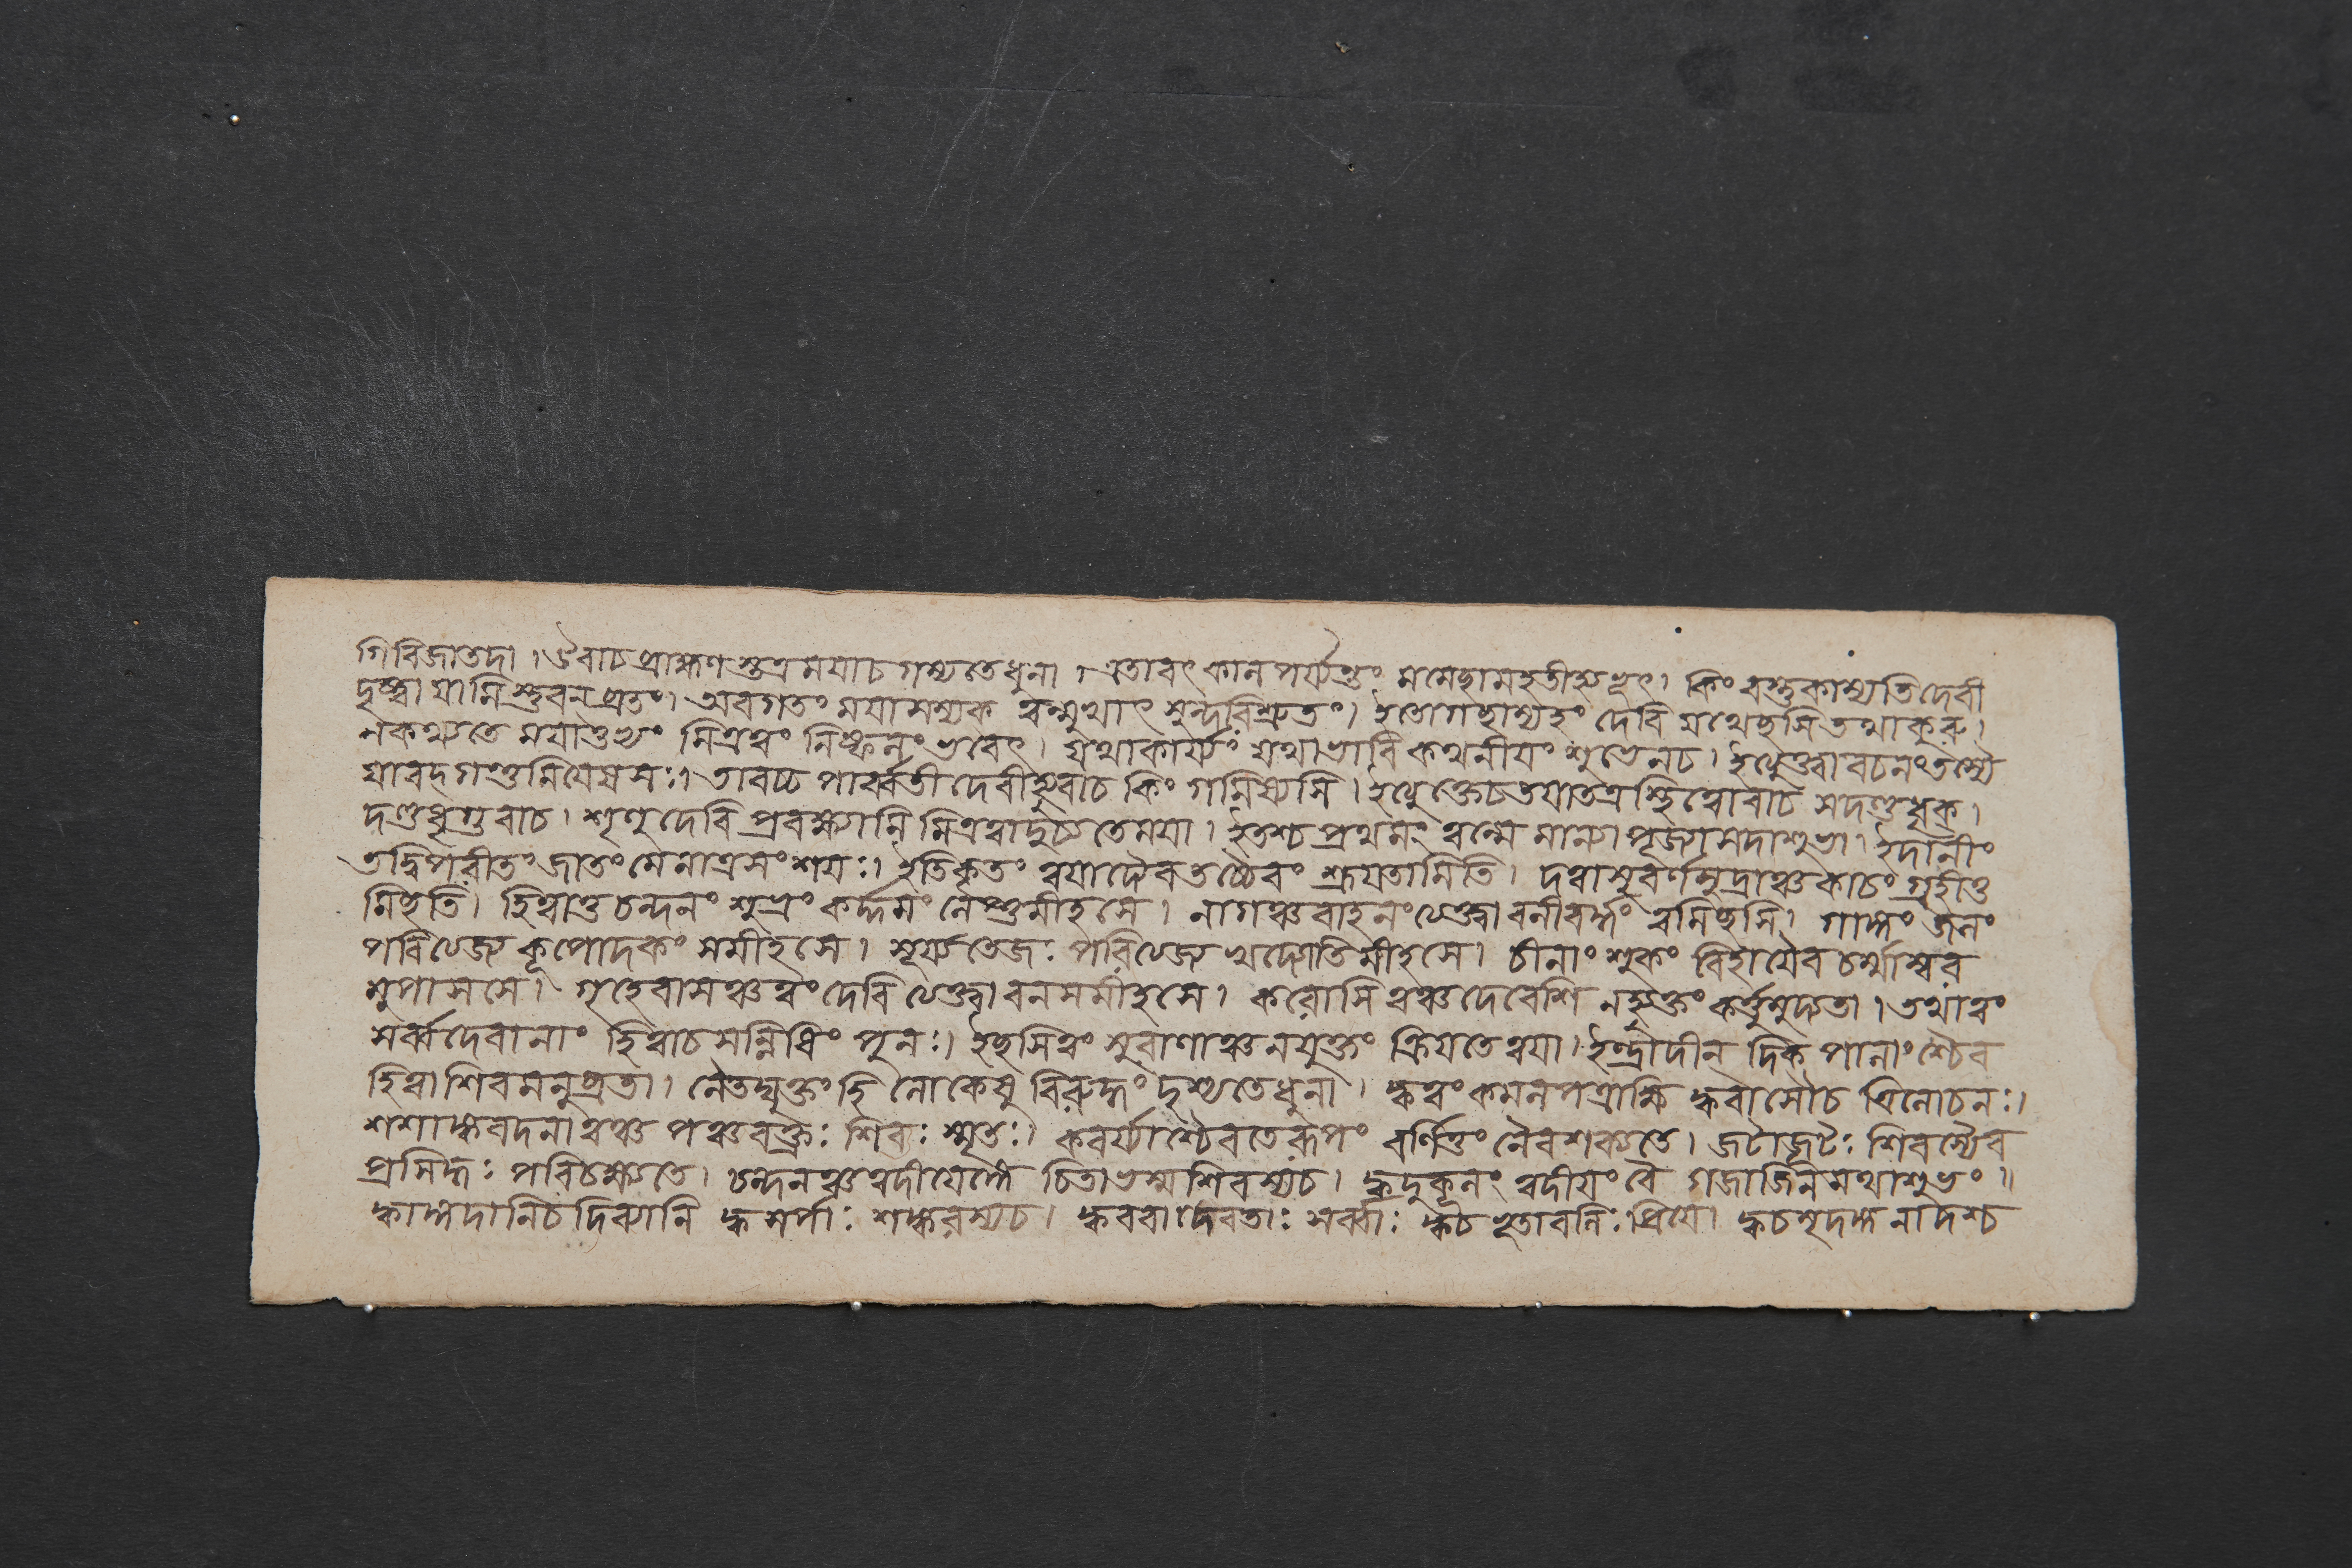 গিরিজাতদা। ঔবাচ ব্রাহ্মণস্তত্র ময়াচ গম্যতেধুনা। এতাবৎ কাল পর্য্যন্তং মমেচ্ছামহতীহ্যভূৎ। কিং বস্তুকাম্যতি দেবী
দৃষ্ট্বা যামি শ্তুবলব্রতং। অবগতং ময়াসম্যক ত্বন্মুখাৎ শুন্দরিশ্রুতং। ইতোগচ্ছাম্যহং দেবি যথেচ্ছসি তথাকুরু।
নকথ্যতে ময়াতুভ্যং মিত্রত্বং নিষ্ফলং ভবেৎ। যথাকার্য্যং যথাভাবি কথনীয়ং শুভেনচ। ইত্যুক্ত্বা বচনং তস্যৈ
যাবদ গন্তুমিয়েষসঃ। তাবচ্চ পার্ব্বতী দেবীহ্যুবাচ কিং গমিষ্যসি। ইত্যুক্তেচতয়াতত্র স্থিত্বোবাচ সদণ্ডধৃক।
দণ্ডধৃগুবাচ। শৃণু দেবি প্রবক্ষ্যামি মিত্রত্বাদুচ্যতেময়া। ইতশ্চ প্রথমং ত্বন্মে মান্যা পূজ্যাসদাশুভা। ইদানীং
তদ্বিপরীতং জাতং মেনাত্রসংশয়ঃ। ইতিকৃতং ত্বয়াদৈবতচ্চৈবং শ্রূয়তামিতি। দত্বাসুবর্ণমুদ্রাঞ্চ কাচং গ্রহীতু
মিচ্ছতি। হিত্বাতু চন্দনং শুভ্রং কর্দ্দমং লেপ্তুমীহসে। নাগঞ্চবাহনং ত্যেক্ত্বা বলীবর্দ্দং ত্বমিচ্ছসি। গাঙ্গং জলং
পরিত্যেজ্য কূপোদকং সমীহসে। সূর্য্যতেজঃ পরিত্যেজ্য খদ্যোতিমীহসে। চীনাংশুকং বিহায়ৈব চর্ম্মাম্বর
মুপাসসে। গৃহেবাসঞ্চত্বং দেবি ত্যেক্ত্বা বনসমীহসে। করোসি ত্বঞ্চদেবেশি নহ্যুক্তং কর্ত্তুমুদ্যতা। তথাত্বং
সর্ব্বদেবানাং হিত্বাচসন্নিধিং পুনঃ। ইচ্ছসিত্বং সুবাণাঞ্চনযুক্তং ক্রিয়তেত্বয়া। ইন্দ্রাদীন দিক পালাংশ্চৈব
হিত্বাশিবমনুব্রতা। নৈতদ্যুক্তং হি লোকেষু বিরুদ্ধং দৃশ্যতেধুনা। ক্বত্বং কমলপত্রাক্ষি ক্ববাসৌচ ত্রিলোচনঃ।
শশাঙ্কবদনাত্বঞ্চ পঞ্চবক্ত্রঃ শিবঃ স্মৃতঃ। কবর্য্যাশ্চৈবতেরূপং বর্ণিতুং নৈবশক্যতে। জটাজূটঃ শিবস্যৈব
প্রসিদ্ধঃ পরিচক্ষ্যতে। চন্দনঞ্চত্বদীয়েঙ্গে চিতাভস্মশিবস্যচ। ক্বদুকূলং ত্বদীয়ং বৈ গজাজিনমথাশুভং॥
ক্বাঙ্গদানিচদিব্যানি ক্বসর্পাঃ শঙ্করস্যচ। ক্ববরাদেবতাঃ সর্ব্বাঃ ক্বচ ভূতাবলিঃ প্রিয়ে। ক্বচমৃদঙ্গনাদশ্চ